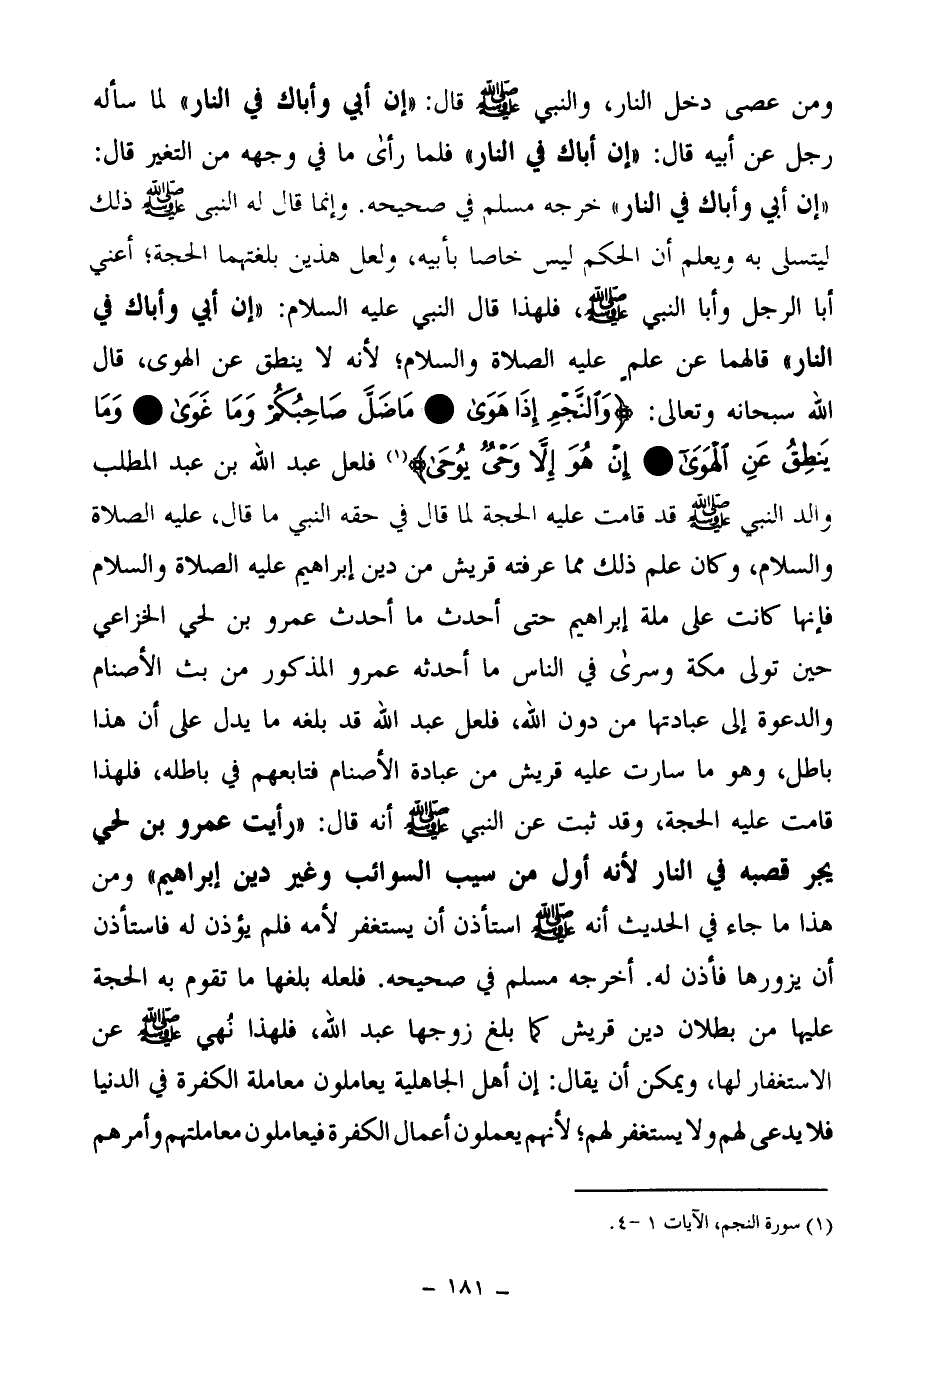 ومن عصى دخل النار، والنبي ﷺ قال: «إن أبي وأباك في النار» لما سأله
رجل عن أبيه قال: «إن أباك في النار» فلما رأىٰ ما في وجهه من التغير قال:
«إن أبي وأباك في النار» خرجه مسلم في صحيحه. وإنما قال له النبي ﷺ ذلك
ليتسلى به ويعلم أن الحكم ليس خاصا بأبيه، ولعل هذين بلغتهما الحجة؛ أعني
أبا الرجل وأبا النبي ﷺ، فلهذا قال النبي عليه السلام: «إن أبي وأباك في
النار» قالهما عن علمٍ عليه الصلاة والسلام؛ لأنه لا ينطق عن الهوى، قال
الله سبحانه وتعالى: ﴿وَٱلنَّجْمِ إِذَا هَوَىٰ ● مَا ضَلَّ صَاحِبُكُمْ وَمَا غَوَىٰ ● وَمَا
يَنطِقُ عَنِ ٱلْهَوَىٰٓ ● إِنْ هُوَ إِلَّا وَحْىٌ يُوحَىٰ﴾(١) فلعل عبد الله بن عبد المطلب
والد النبي ﷺ قد قامت عليه الحجة لما قال في حقه النبي ما قال، عليه الصلاة
والسلام، وكان علم ذلك مما عرفته قريش من دين إبراهيم عليه الصلاة والسلام
فإنها كانت على ملة إبراهيم حتى أحدث ما أحدث عمرو بن لحي الخزاعي
حين تولى مكة وسرىٰ في الناس ما أحدثه عمرو المذكور من بث الأصنام
والدعوة إلى عبادتها من دون الله، فلعل عبد الله قد بلغه ما يدل على أن هذا
باطل، وهو ما سارت عليه قريش من عبادة الأصنام فتابعهم في باطله، فلهذا
قامت عليه الحجة، وقد ثبت عن النبي ﷺ أنه قال: «رأيت عمرو بن لحي
يجر قصبه في النار لأنه أول من سيب السوائب وغير دين إبراهيم» ومن
هذا ما جاء في الحديث أنه ﷺ استأذن أن يستغفر لأمه فلم يؤذن له فاستأذن
أن يزورها فأذن له. أخرجه مسلم في صحيحه. فلعله بلغها ما تقوم به الحجة
عليها من بطلان دين قريش كما بلغ زوجها عبد الله، فلهذا نُهي ﷺ عن
الاستغفار لها، ويمكن أن يقال: إن أهل الجاهلية يعاملون معاملة الكفرة في الدنيا
فلا يدعى لهم ولا يستغفر لهم؛ لأنهم يعملون أعمال الكفرة فيعاملون معاملتهم وأمرهم
(١) سورة النجم، الآيات ١ -٤.
- ١٨١ -